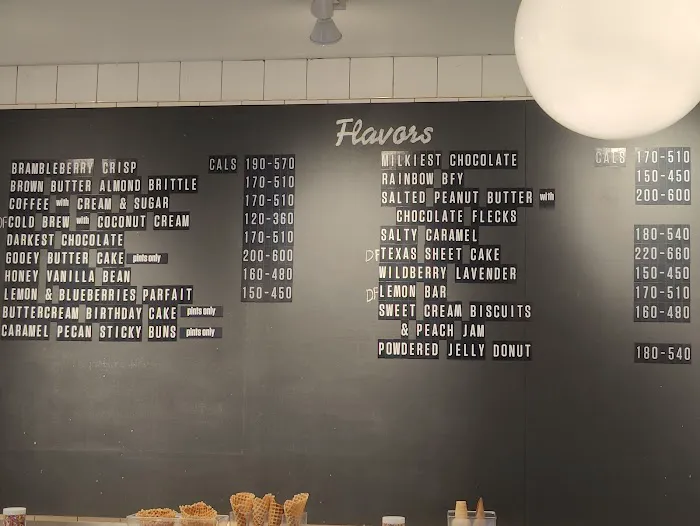 Flavors
BRAMBLEBERRY CRISP CALS 190-570
BROWN BUTTER ALMOND BRITTLE 170-510
COFFEE with CREAM & SUGAR 170-510
DF COLD BREW with COCONUT CREAM 120-360
DARKEST CHOCOLATE 170-510
GOOEY BUTTER CAKE pints only 200-600
HONEY VANILLA BEAN 160-480
LEMON & BLUEBERRIES PARFAIT 150-450
BUTTERCREAM BIRTHDAY CAKE pints only
CARAMEL PECAN STICKY BUNS pints only
MILKIEST CHOCOLATE CALS 170-510
RAINBOW BFY 150-450
SALTED PEANUT BUTTER with 200-600
CHOCOLATE FLECKS
SALTY CARAMEL 180-540
DF TEXAS SHEET CAKE 220-660
WILDBERRY LAVENDER 150-450
DF LEMON BAR 170-510
SWEET CREAM BISCUITS 160-480
& PEACH JAM
POWDERED JELLY DONUT 180-540